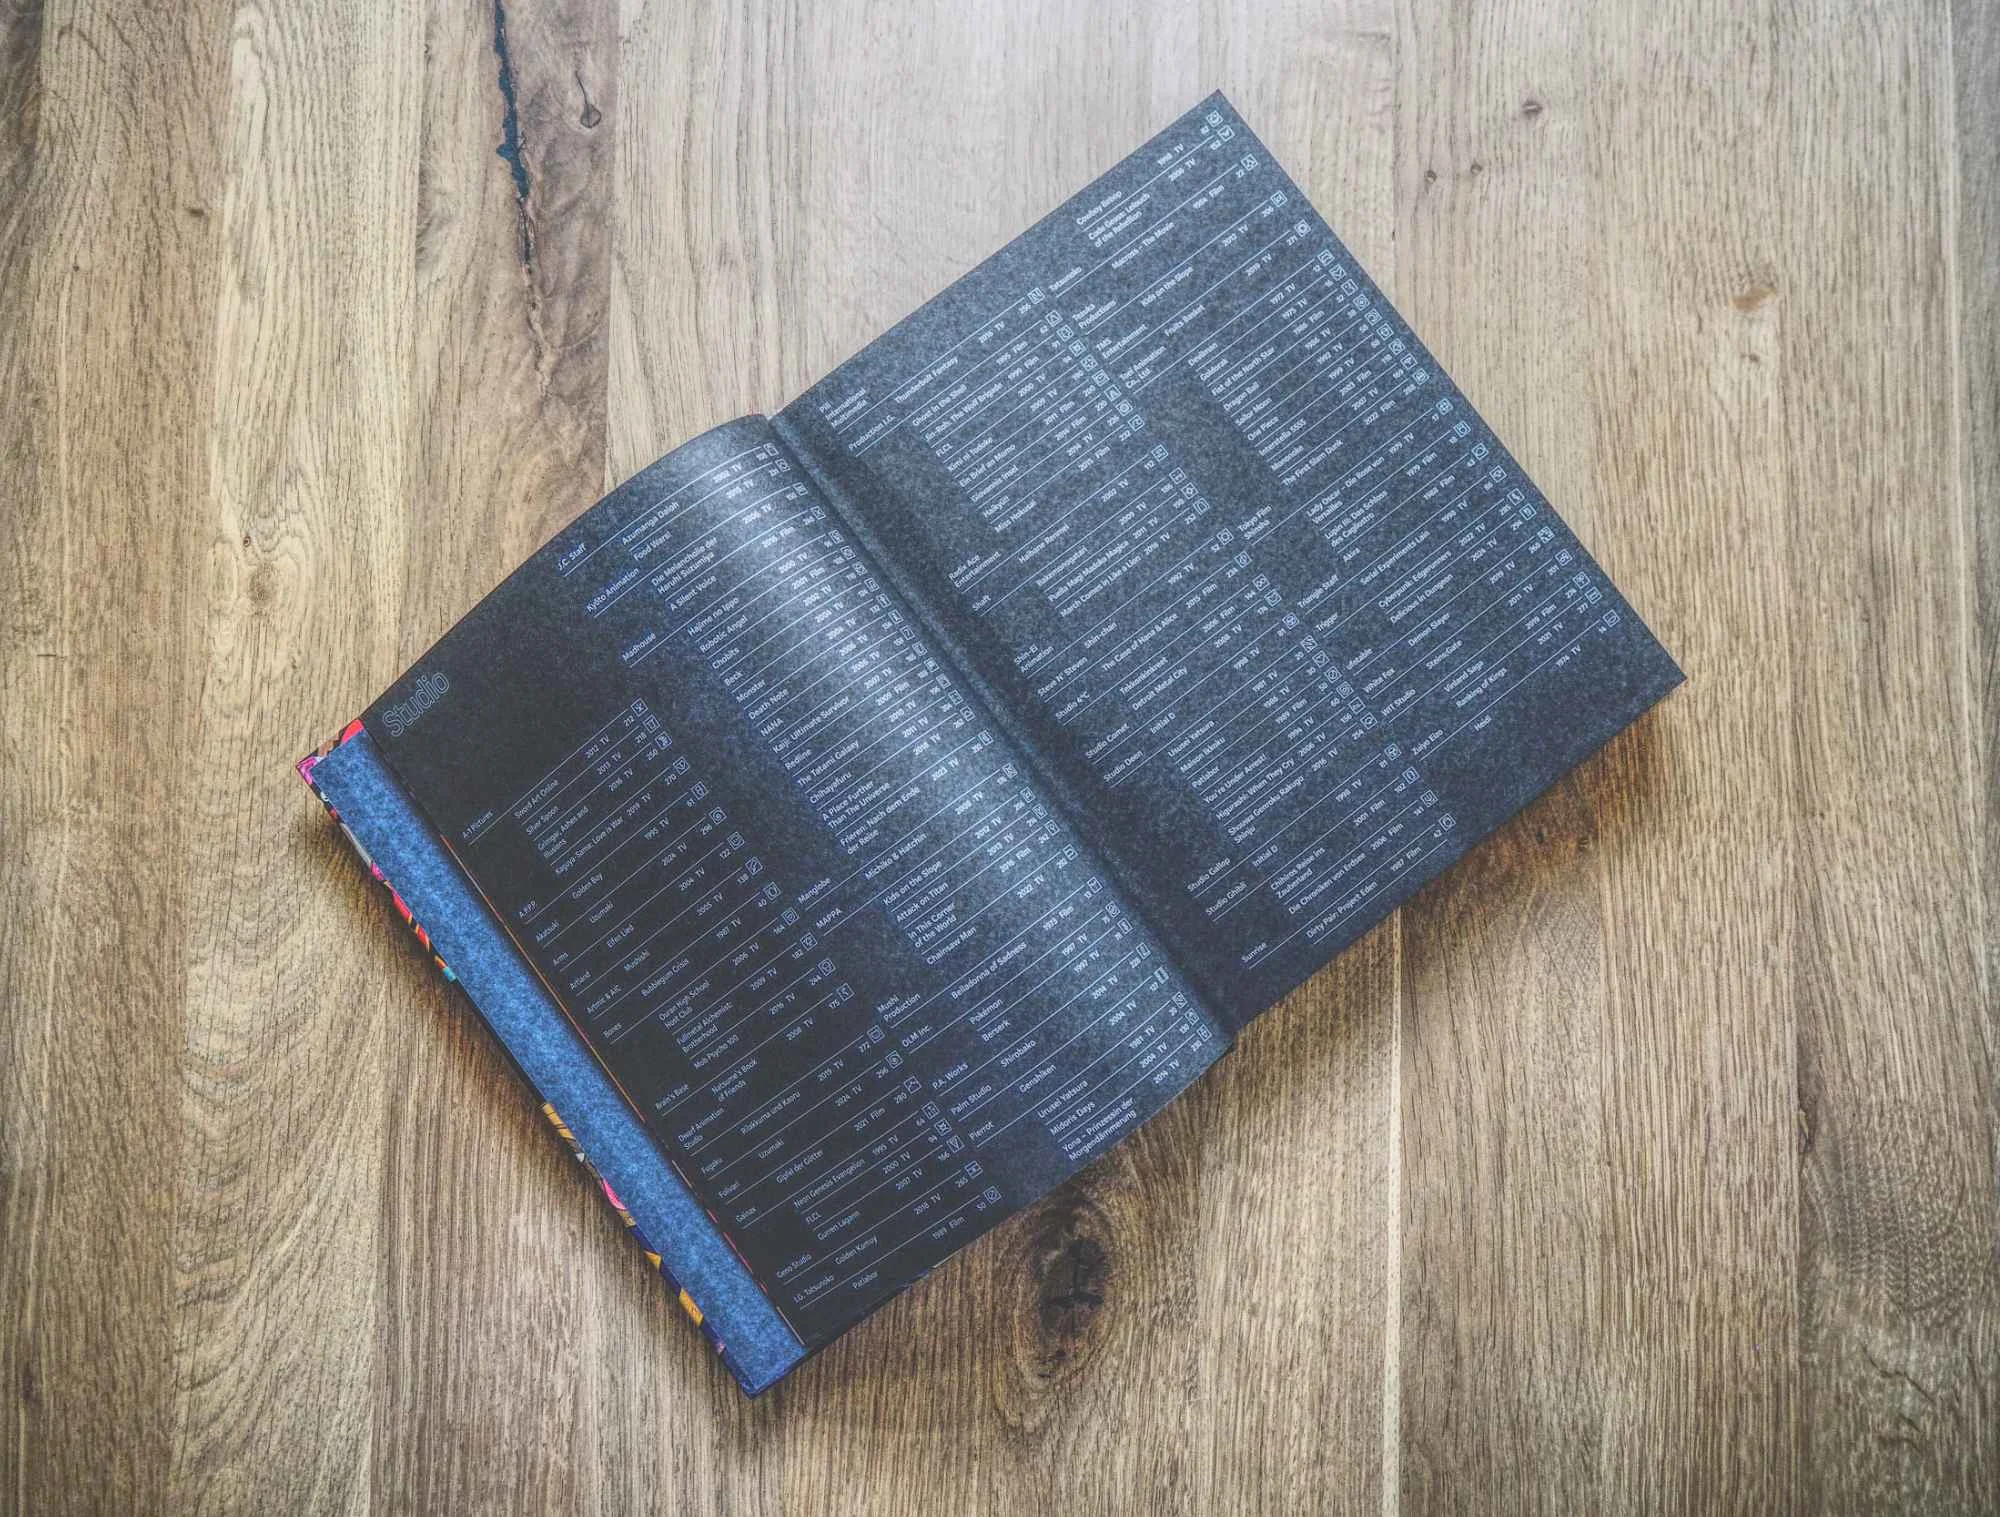 Studio
A-1 Pictures
Sword Art Online 2012 TV 212
Silver Spoon 2013 TV 218
Grimgar, Ashes and
Illusions 2016 TV 250
Kaguya Sama: Love is War 2019 TV 270
A.P.P.P.
Golden Boy 1995 TV 61
Akatsuki
Uzumaki 2024 TV 296
Arms
Elfen Lied 2004 TV 122
Artland
Mushishi 2005 TV 138
Artmic & AIC
Bubblegum Crisis 1987 TV 40
Bones
Ouran High School
Host Club 2006 TV 164
Fullmetal Alchemist:
Brotherhood 2009 TV 182
Mob Psycho 100 2016 TV 244
Brain's Base
Natsume's Book
of Friends 2008 TV 175
Dwarf Animation
Studio
Rilakkuma und Kaoru 2019 TV 272
Fugaku
Uzumaki 2024 TV 296
Folivari
Gipfel der Götter 2021 Film 280
Gainax
Neon Genesis Evangelion 1995 TV 64
FLCL 2000 TV 94
Gurren Lagann 2007 TV 166
Geno Studio
Golden Kamuy 2018 TV 265
I.G. Tatsunoko
Patlabor 1989 Film 50
J.C. Staff
Azumanga Daioh 2002 TV 108
Food Wars! 2015 TV
Kyōto Animation
Die Melancholie der
Haruhi Suzumiya 2006 TV
A Silent Voice 2016 Film
Madhouse
Hajime no Ippo 2000 TV
Robotic Angel 2001 Film
Chobits 2002 TV
Beck 2004 TV
Monster 2004 TV
Death Note 2006 TV
NANA 2006 TV
Kaiji: Ultimate Survivor 2007 TV
Redline 2009 Film
The Tatami Galaxy 2010 TV
Chihayafuru 2011 TV
A Place Further
Than The Universe 2018 TV
Frieren: Nach dem Ende
der Reise 2023 TV
Manglobe
Michiko & Hatchin 2008 TV
MAPPA
Kids on the Slope 2012 TV
Attack on Titan 2013 TV
In This Corner
of the World 2016 Film
Chainsaw Man 2022 TV
Mushi
Production
Belladonna of Sadness 1973 Film 13
OLM Inc.
Pokémon 1997 TV
Berserk 1997 TV
P.A. Works
Shirobako 2014 TV 228
Palm Studio
Genshiken 2004 TV
Pierrot
Urusei Yatsura 1981 TV
Midoris Days 2004 TV 130
Yona – Prinzessin der
Morgendämmerung 2014 TV 230
Pili
International
Multimedia
Thunderbolt Fantasy 2016 TV 256
Production I.G.
Ghost in the Shell 1995 Film 62
Jin-Roh: The Wolf Brigade 1999 Film 91
FLCL 2000 TV 94
Kimi ni Todoke 2009 TV
Ein Brief an Momo 2011 Film
Giovannis Insel 2014 Film
Haikyū!! 2014 TV
Miss Hokusai 2015 Film 232
Radix Ace
Entertainment
Haibane Renmei 2002 TV 112
Shaft
Bakemonogatari 2009 TV
Puella Magi Madoka Magica 2011 TV
March Comes in Like a Lion 2016 TV 252
Shin-Ei
Animation
Shin-chan 1992 TV 52
Steve N' Steven
The Case of Hana & Alice 2015 Film 238
Studio 4°C
Tekkonkreet 2006 Film 144
Studio Comet
Detroit Metal City 2008 TV 176
Studio Deen
Initial D 1998 TV 81
Urusei Yatsura 1981 TV
Maison Ikkoku
Patlabor 1989 Film 50
You're Under Arrest! 1994 TV 60
Higurashi: When They Cry 2006 TV 156
Shouwa Genroku Rakugo
Shinju 2016 TV 254
Studio Gallop
Initial D 1998 TV 81
Studio Ghibli
Chihiros Reise ins
Zauberland 2001 Film 102
Die Chroniken von Erdsee 2006 Film
Sunrise
Dirty Pair: Project Eden 1987 Film 42
Cowboy Bebop 1998 TV
Code Geass: Lelouch
of the Rebellion 2006 TV
Tatsunoko
Macross – The Movie 1984 Film 22
Tezuka
Productions
Kids on the Slope 2012 TV 206
TMS
Entertainment
Fruits Basket 2019 TV 271
Toei Animation
Co., Ltd.
Devilman 1972 TV 12
Goldorak 1975 TV 16
Fist of the North Star 1986 Film
Dragon Ball 1986 TV
Sailor Moon 1992 TV
One Piece 1999 TV
Interstella 5555 2003 Film
Mononoke 2007 TV
The First Slam Dunk 2022 Film
Tokyo Film
Shinsha
Lady Oscar – Die Rose von
Versailles 1979 TV 17
Lupin III: Das Schloss
des Cagliostro 1979 Film 18
Akira 1988 Film
Triangle Staff
Serial Experiments Lain 1998 TV
Trigger
Cyberpunk: Edgerunners 2022 TV 285
Delicious in Dungeon 2024 TV 294
ufotable
Demon Slayer 2019 TV 268
White Fox
Steins;Gate 2011 TV
WIT Studio
Vinland Saga 2019
Ranking of Kings 2021 TV 277
Zuiyo Eizo
Heidi 1974 TV 14